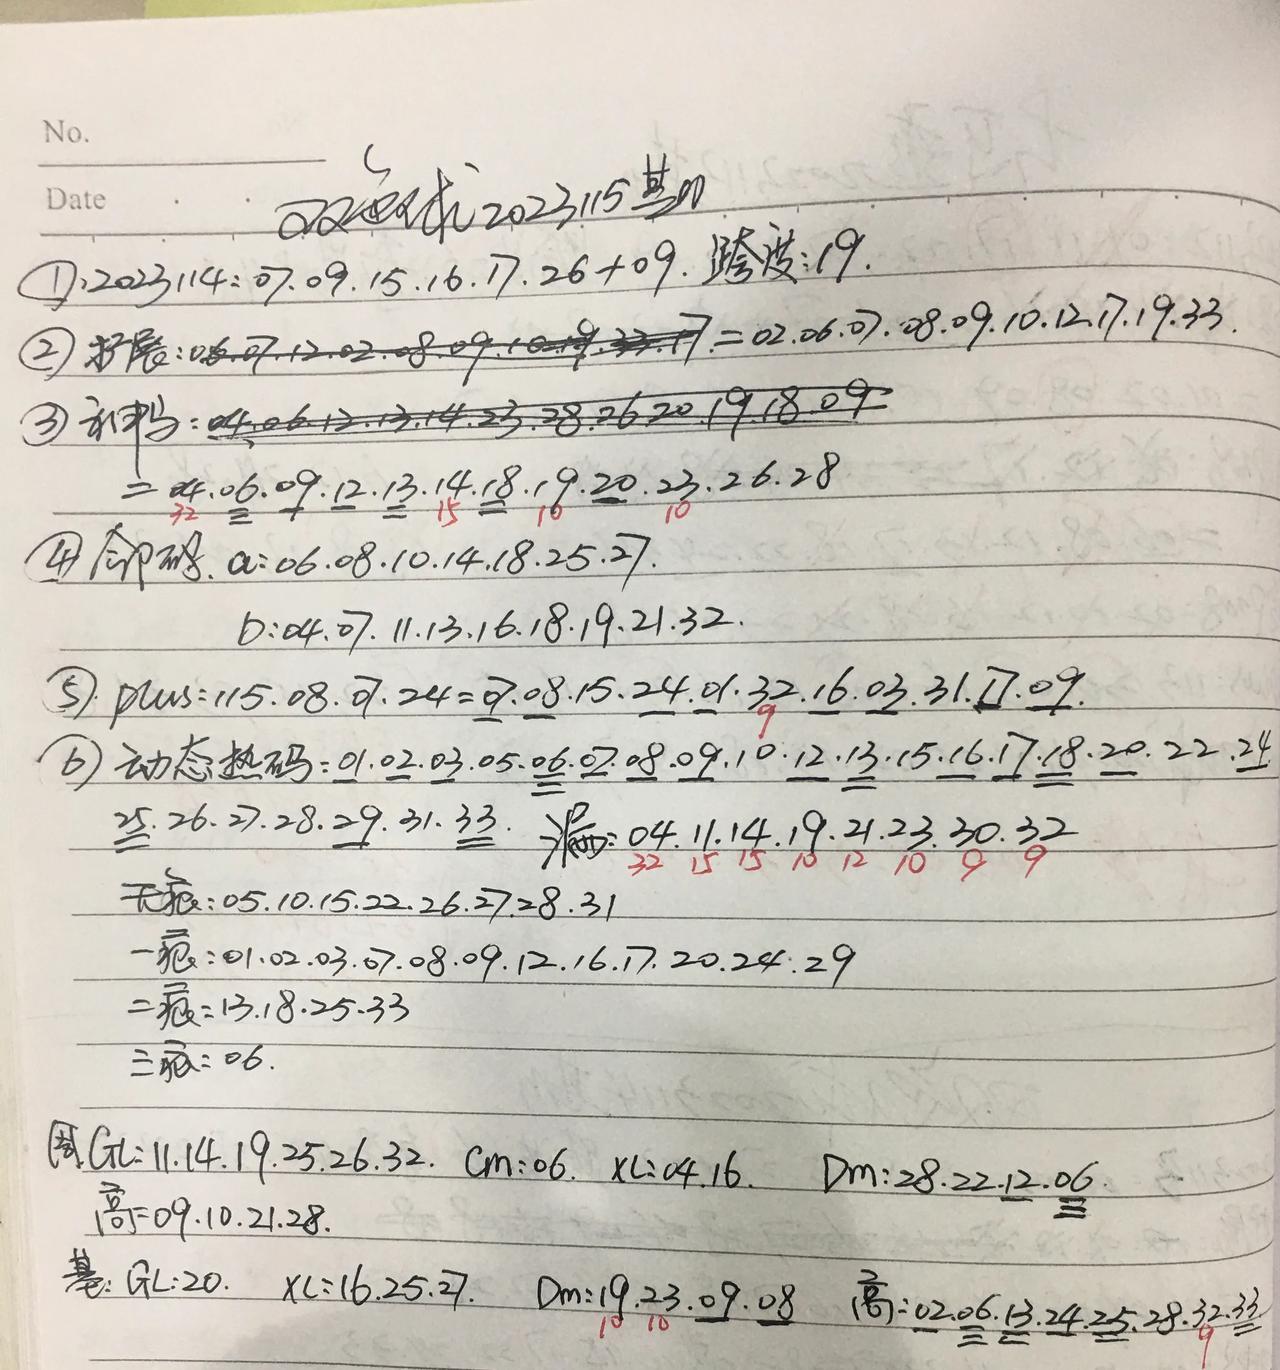 No.
Date
双色球2023115基加
①.2023114:07.09.15.16.17.26+09. 跨度:19.
②扩展:06.07.12.02.08.09.10.19.33.17=02.06.07.08.09.10.12.17.19.33.
③神码:04.06.12.13.14.23.28.26.20.19.18.09
=04.06.09.12.13.14.18.19.20.23.26.28
32 15 10 10
④ 码. a:06.08.10.14.18.25.27.
b:04.07.11.13.16.18.19.21.32.
⑤.plus:115.08.07.24=07.08.15.24.01.32.16.03.31.17.09.
9
⑥动态热码:01.02.03.05.06.07.08.09.10.12.13.15.16.17.18.20.22.24
25.26.27.28.29.31.33. 漏:04.11.14.19.21.23.30.32
32 15 15 10 12 10 9 9
无痕:05.10.15.22.26.27.28.31
一痕:01.02.03.07.08.09.12.16.17.20.24.29
二痕:13.18.25.33
三痕:06.
GL:11.14.19.25.26.32. Cm:06. XL:04.16. Dm:28.22.12.06.
高=09.10.21.28.
基:GL:20. XL:16.25.27. Dm:19.23.09.08 高:02.06.13.24.25.28.32.33
10 10 9